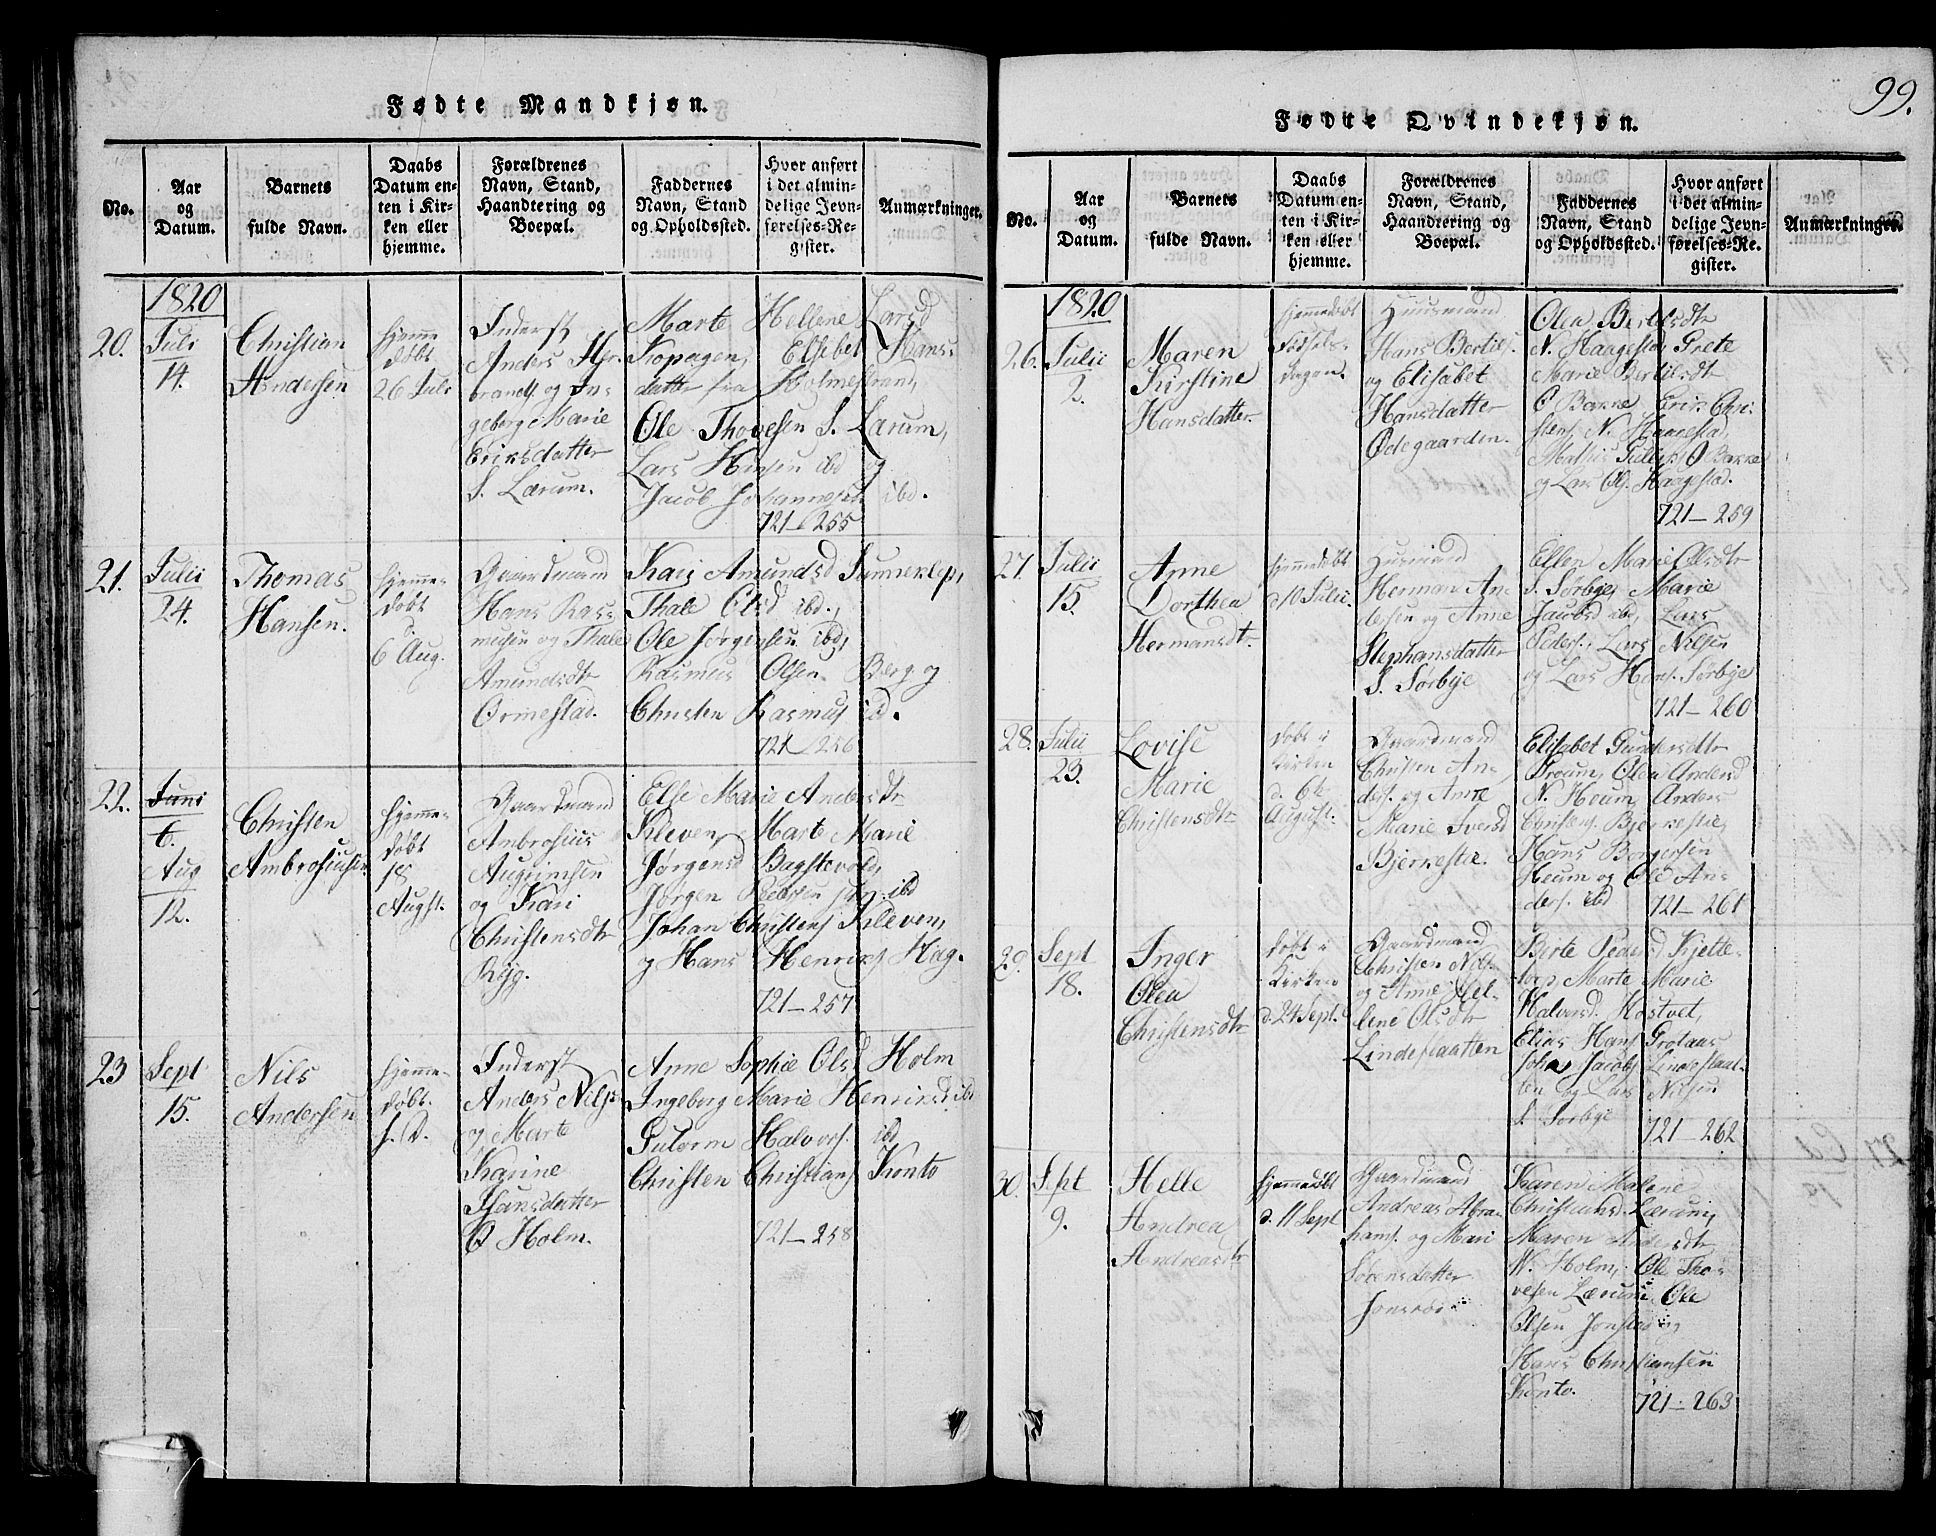 99.
Fødte Mandkjøn.
No.
Aar og Datum.
Barnets fulde Navn.
Daabs Datum enten i Kirken eller hjemme.
Forældrenes Navn, Stand, Haandtering og Boepæl.
Faddernes Navn, Stand og Opholdssted.
Hvor anført i det almindelige Jevnførelses-Register.
Anmærkninger.
1820
20.
Juli
14.
Christian
Andersen
hjemme
døbt
26 Juli
Inderst
Anders
og In-
geborg Marie
Eriksdatter
S. Lærum.
Marte Hellene Larsd
Kopagen, Elsebet Hans
datter fra Holmestrand,
Ole Thovesen S. Lærum,
Lars Hansen ibd og
Jacob Johannesen ibd.
721–255
21.
Julii
24.
Thomas
Hansen.
hjemme-
døbt
d.
6 Aug.
Gaardmand
Hans Ras-
mesen og Thale
Amundsdtr
Ormestad.
Kari Amundsd Sunneklep,
Thale Olsd ibd.,
Ole Jørgensen ibd,
Rasmus Olsen Berg og
Christen Rasmus ibd.
721–256
22.
Juni
6.
Aug
12.
Christen
Ambrosiusen
hjemme-
døbt
18
Augst.
Gaardmand
Ambrosius
og Kari
Christensdtr
Ryg.
Else Marie Andersdtr
Kleven, Marte Marie
Jørgensd Bagstevold,
Jørgen Pedersen ibd
Johan Christens Kleven,
og Hans Henriks Hag.
721–257
23
Sept
15.
Nils
Andersen
hjemme-
døbt.
s. D.
Inderst
Anders Nils
og Marte
Karine
Hansdatter
Ø Holm.
Anne Sophie Olsd Holm
Ingeborg Marie Henriksd ibd
Gutorm Halvors. ibd
Christen Christians Konto
721–258
Fødte Qvindekjøn.
No.
Aar og Datum.
Barnets fulde Navn.
Daabs Datum enten i Kirken eller hjemme.
Forældrenes Navn, Stand, Haandtering og Boepæl.
Faddernes Navn, Stand og Opholdssted.
Hvor anført i det almindelige Jevnførelses-Register.
Anmærkninger.
1820
26.
Julii
2.
Maren
Kirstine
Hansdatter.
hjemmedøbt
Fødsels-
dagen.
Huusmand
Hans Bertils.
og Elisabet
Hansdatter
Ødegaarden.
Olea Bertilsdtr
N. Haagestad, Grete
Marie Bertilsdtr
Ø Bakke Erik Chri-
stens N. Haagestad,
Ø Bakke
og Lars Ols. Haagestad.
721–259
27.
Julii
15.
Anne
Dorthea
Hermansdtr.
hjemmedøbt
d 10 Julii.
Husmand
Herman An-
dersen og Anne
Stephansdatter
S. Sørbye
Ellen Marie Olsdtr
S. Sørbye, Marie
Jacobsd ibd, Lars
Peders., Lars Nilsen
og Lars Hans. Sørbye
721–260
28.
Julii
23.
Lovise
Marie
Christensdtr
døbt i
Kirken
d. 6te
August.
Gaardmand
Christen An-
ders. og Anne
Marie Iversd
Bjerkestie.
Elisabet Gundersdtr
Froum, Olea Andersd
N. Heum, Anders
Christens. Bjerkestie,
Hans Borgersen
Heum og Ole An-
ders. ibd
721–261
29.
Sept
18.
Inger
Olea
Christensdtr
døbt i
Kirken
d. 24 Sept.
Gaardmand
Christen Nils.
og Anne Hel-
lene Olsdtr
Lindesaatten
Birte Kjelle-
torp Marte Marie
Halversd. Hostvet,
Elias Hans Grotaas
Johan Jacobs Lindesaat-
ten og Lars Nilsen
S. Sørbye
721–262
30.
Sept
9.
Helle
Andrea
Andreasdtr
hjemmedøbt
d. 11 Sept
Gaardmand
Andreas Abra-
hams. og Mari
Sørensdatter
Karen Malene
Christiansd. Lærum,
Maren Andersdtr
N. Holm, Ole Tho-
vesen Lærum, Ole
Olsen og
Hans Christiansen
Konto.
721–263